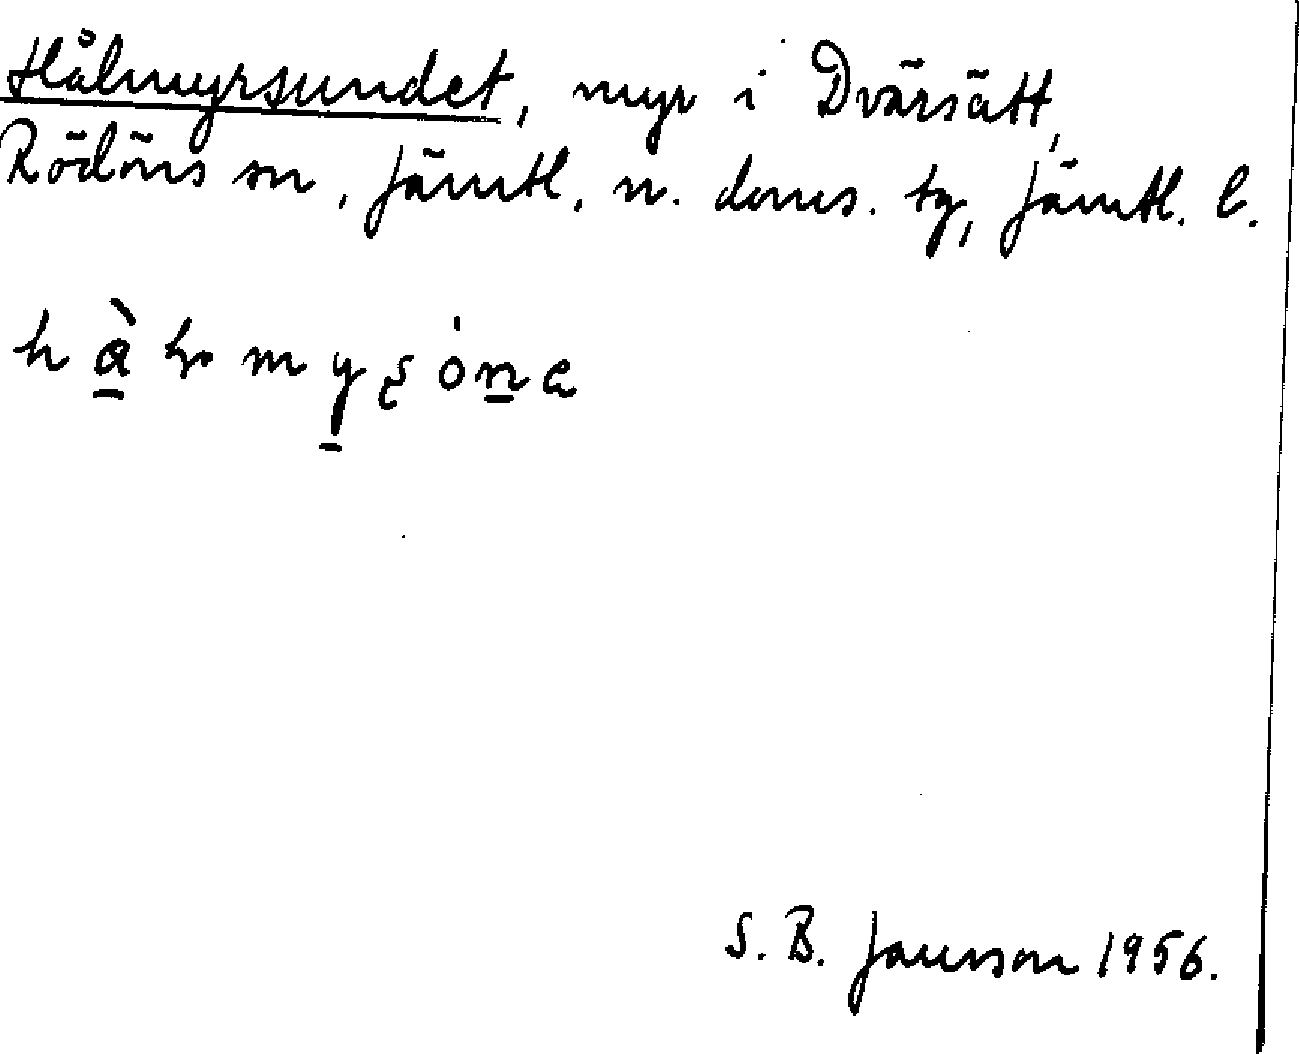 Hålmyrsundet, myr i Dvärsätt,
Rödöns sn, Jämtl. n. doms. tg, Jämtl. l.
S. B. Jansson 1956.